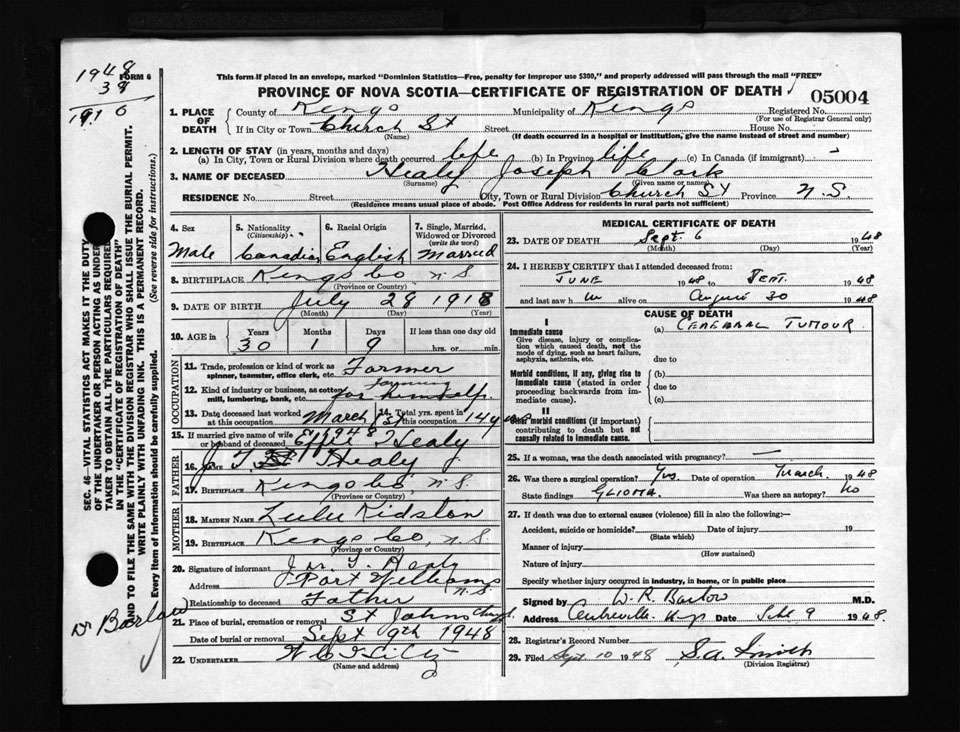 1948
38
1910
FORM 6
This form if placed in an envelope, marked "Dominion Statistics—Free, penalty for improper use $300," and properly addressed will pass through the mail "FREE"
PROVINCE OF NOVA SCOTIA—CERTIFICATE OF REGISTRATION OF DEATH
05004
1. PLACE OF DEATH
County of Kings Municipality of Kings Registered No.
(For use of Registrar General only)
If in City or Town Church St Street House No.
(Name) (If death occurred in a hospital or institution, give the name instead of street and number)
2. LENGTH OF STAY (in years, months and days)
(a) In City, Town or Rural Division where death occurred life (b) In Province life (c) In Canada (if immigrant) -
3. NAME OF DECEASED Healy Joseph Clark
(Surname) (Given name or names)
RESIDENCE No. Street City, Town or Rural Division Church St Province N.S.
(Residence means usual place of abode. Post Office Address for residents in rural parts not sufficient)
4. Sex
Male
5. Nationality
(Citizenship)
Canadian
6. Racial Origin
English
7. Single, Married, Widowed or Divorced
(write the word)
Married
8. BIRTHPLACE Kings Co N S
(Province or Country)
9. DATE OF BIRTH July 28 1918
(Month) (Day) (Year)
10. AGE in
Years Months Days If less than one day old
30 1 9 hrs. or min.
OCCUPATION
11. Trade, profession or kind of work as Farmer
spinner, teamster, office clerk, etc.
12. Kind of industry or business, as cotton mill, lumbering, bank, etc. farming for himself
13. Date deceased last worked at this occupation March 1948
14. Total yrs. spent in this occupation 14 yrs
15. If married give name of wife or husband of deceased Effie Healy
FATHER
16. NAME J. Healy
17. BIRTHPLACE Kings Co, N.S.
(Province or Country)
MOTHER
18. MAIDEN NAME Lulu Kidston
19. BIRTHPLACE Kings Co, N.S.
(Province or Country)
20. Signature of informant Healy
Address Port Williams N.S.
Relationship to deceased Father
21. Place of burial, cremation or removal St Johns Church
Date of burial or removal Sept 9th 1948
22. UNDERTAKER
(Name and address)
MEDICAL CERTIFICATE OF DEATH
23. DATE OF DEATH Sept. 6 1948
(Month) (Day) (Year)
24. I HEREBY CERTIFY that I attended deceased from:
JUNE 1948 to SEPT. 1948
and last saw h im alive on August 30 1948
CAUSE OF DEATH
I
Immediate cause (a) CEREBRAL TUMOUR
Give disease, injury or complication which caused death, not the mode of dying, such as heart failure, asphyxia, asthenia, etc. due to
Morbid conditions, if any, giving rise to immediate cause (stated in order proceeding backwards from immediate cause). (b)
due to
(c)
II
Other morbid conditions (if important) contributing to death but not causally related to immediate cause.
25. If a woman, was the death associated with pregnancy? —
26. Was there a surgical operation? Yes. Date of operation March 1948
State findings GLIOMA. Was there an autopsy? No
27. If death was due to external causes (violence) fill in also the following:—
Accident, suicide or homicide? Date of injury 19
(State which)
Manner of injury
(How sustained)
Nature of injury
Specify whether injury occurred in industry, in home, or in public place
Signed by W. R. Barlow M.D.
Address Centreville Date Sept 9 1948
28. Registrar's Record Number
29. Filed Sept 10 1948 S.A. Smith
(Division Registrar)
SEC. 46—VITAL STATISTICS ACT MAKES IT THE DUTY
OF THE UNDERTAKER OR PERSON ACTING AS UNDER
TAKER TO OBTAIN ALL THE PARTICULARS REQUIRED
IN THE "CERTIFICATE OF REGISTRATION OF DEATH"
AND TO FILE THE SAME WITH THE DIVISION REGISTRAR WHO SHALL ISSUE THE BURIAL PERMIT.
WRITE PLAINLY WITH UNFADING INK. THIS IS A PERMANENT RECORD.
Every item of information should be carefully supplied. (See reverse side for instructions.)
Dr Barlow